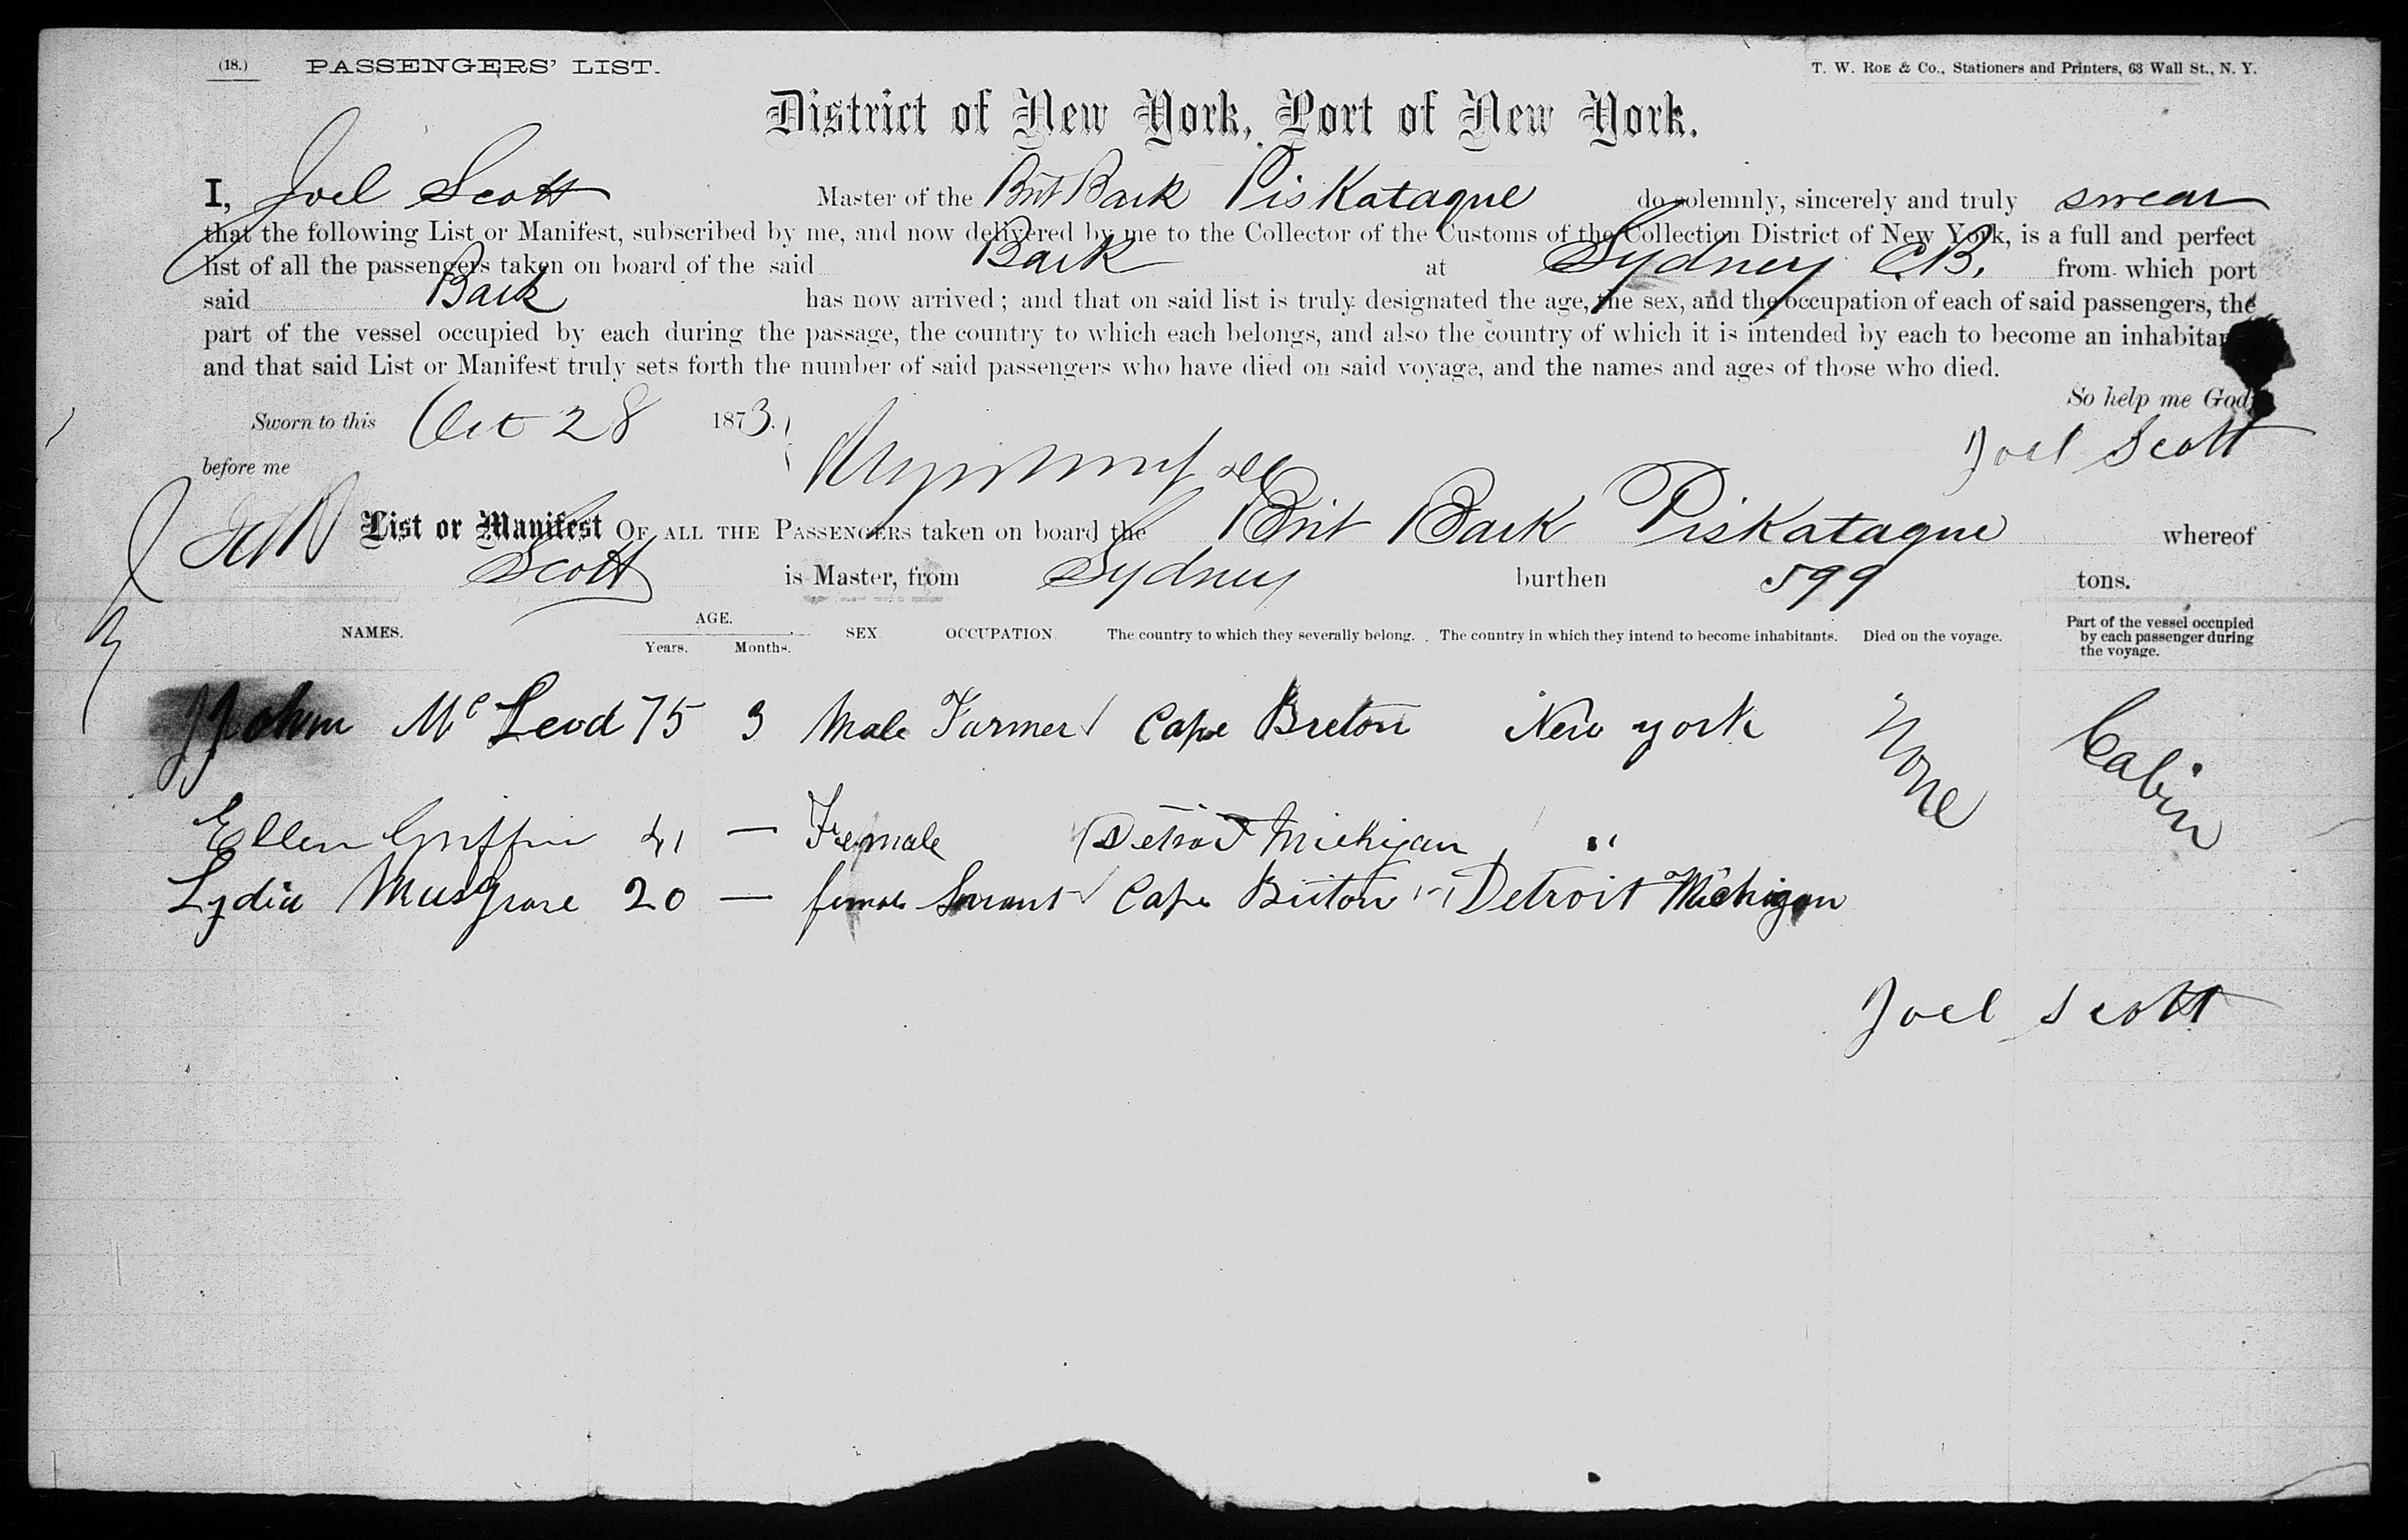 (18.) PASSENGERS' LIST. T. W. ROE & Co., Stationers and Printers, 63 Wall St., N. Y.
District of New York, Port of New York.
I, Joel Scott Master of the Brit Bark Piskataque do solemnly, sincerely and truly swear
that the following List or Manifest, subscribed by me, and now delivered by me to the Collector of the Customs of the Collection District of New York, is a full and perfect
list of all the passengers taken on board of the said Bark at Sydney C.B. from which port
said Bark has now arrived; and that on said list is truly designated the age, the sex, and the occupation of each of said passengers, the
part of the vessel occupied by each during the passage, the country to which each belongs, and also the country of which it is intended by each to become an inhabitant
and that said List or Manifest truly sets forth the number of said passengers who have died on said voyage, and the names and ages of those who died.
So help me God
Sworn to this Oct 28 1873.
before me Joel Scott
List or Manifest OF ALL THE PASSENGERS taken on board the Brit Bark Piskataque whereof
Scott is Master, from Sydney burthen 599 tons.
NAMES. AGE. Years. Months. SEX. OCCUPATION. The country to which they severally belong. The country in which they intend to become inhabitants. Died on the voyage. Part of the vessel occupied by each passenger during the voyage.
John Mc Leod 75 3 Male Farmer Cape Breton New york None Cabin
Ellen Griffin 41 — Female Detroit Michigan "
Lydia Musgrave 20 — female Servant Cape Briton Detroit Michigan
Joel Scott